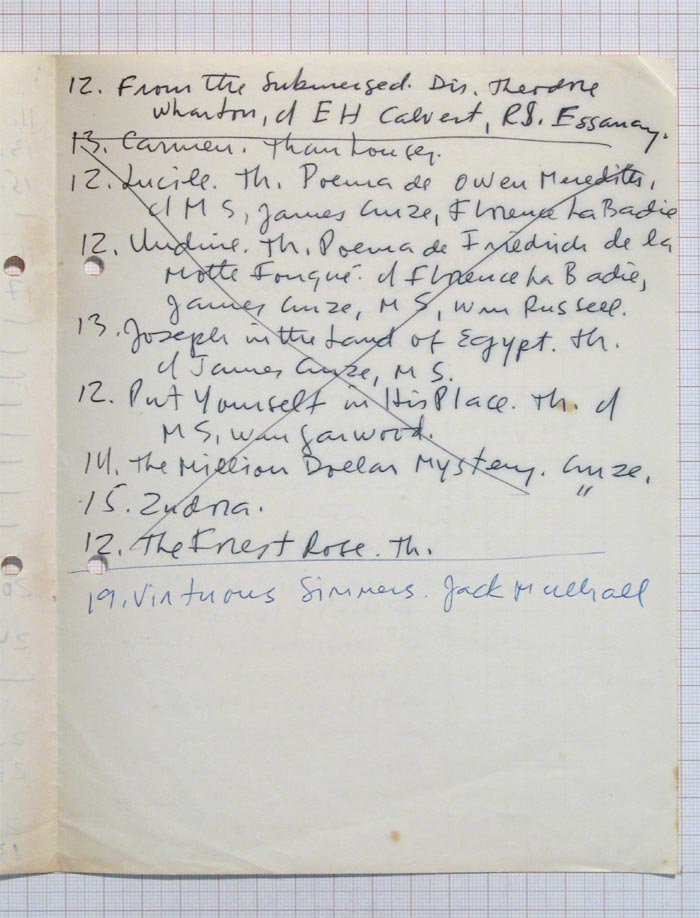 12. From the Submerged. Dir. Theodore
Wharton, d E H Calvert, R.S. Essanay.
13. Carmen. Thanhouser.
12. Lucile. Th. Poema de Owen Meredith,
d M S, James Cruze, Florence La Badie
12. Undine. Th. Poema de Friedrich de la
Motte Fouqué. d Florence La Badie,
James Cruze, M S, Wm Russell.
13. Joseph in the Land of Egypt. Th.
d James Cruze, M S.
12. Put Yourself in His Place. Th. d
M S, Wm Garwood.
14. The Million Dollar Mystery. Cruze.
15. Zudora. "
12. The Forest Rose. Th.
19. Virtuous Sinners. Jack Mulhall